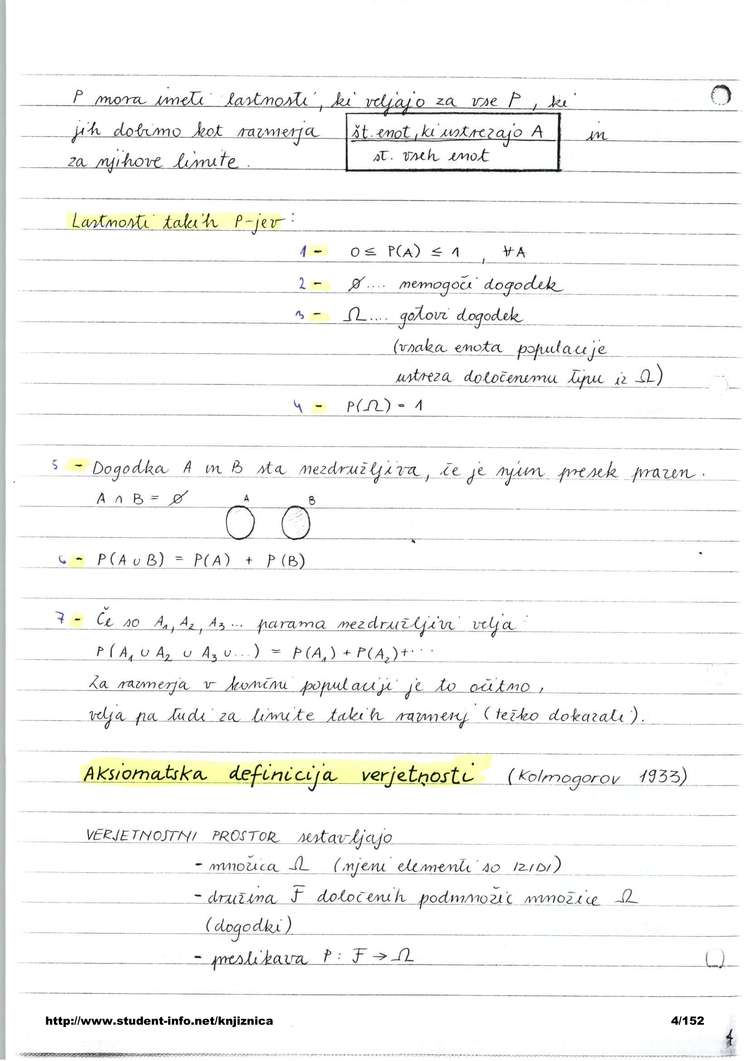 P mora imeti lastnosti, ki veljajo za vse P, ki
jih dobimo kot razmerja št. enot, ki ustrezajo A in
za njihove limite. št. vseh enot
Lastnosti takih P-jev:
1 - 0 ≤ P(A) ≤ 1 , ∀A
2 - ∅.... nemogoči dogodek
3 - Ω.... gotovi dogodek
(vsaka enota populacije
ustreza določenemu tipu iz Ω)
4 - P(Ω) = 1
5 - Dogodka A in B sta nezdružljiva, če je njun presek prazen.
A ∩ B = ∅ A B
6 - P(A ∪ B) = P(A) + P(B)
7 - Če so A₁, A₂, A₃ ... paroma nezdružljivi velja
P(A₁ ∪ A₂ ∪ A₃ ∪ ...) = P(A₁) + P(A₂) + ...
Za razmerja v končni populaciji je to očitno,
velja pa tudi za limite takih razmerij (težko dokazati).
Aksiomatska definicija verjetnosti (Kolmogorov 1933)
VERJETNOSTNI PROSTOR sestavljajo
- množica Ω (njeni elementi so IZIDI)
- družina F določenih podmnožic množice Ω
(dogodki)
- preslikava P : F → Ω
http://www.student-info.net/knjiznica 4/152